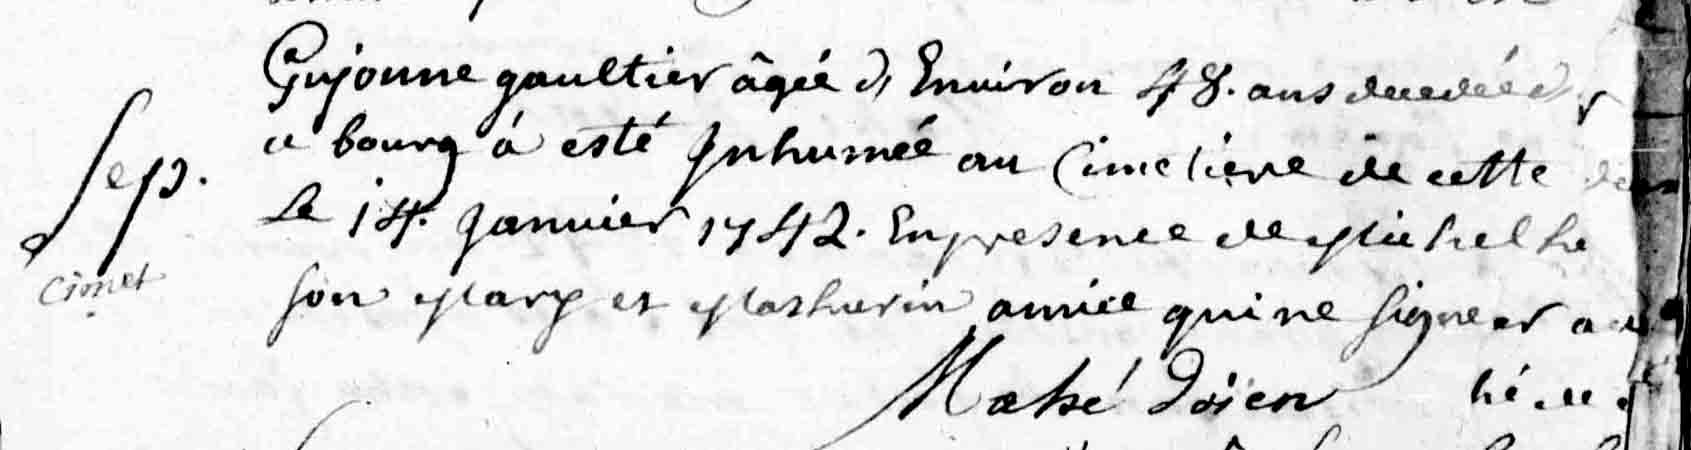 Guyonne gaultier âgée d'Environ 48. ans decedée
Sep. ce bourg à esté Inhumée au Cimetiere de cette
le 14. Janvier 1742. En presence de Michel
Cimet son Mary et Mathurin amice qui ne signe
Mahé Doïen